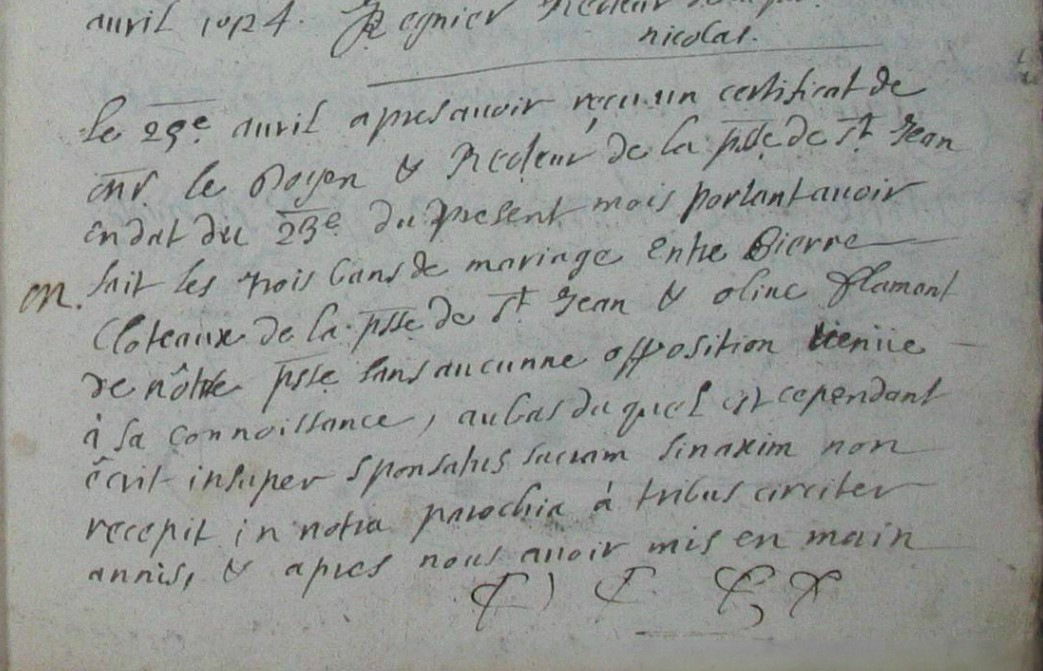 avril Regnier Recteur
nicolas.
Le 29e avril apres avoir reçu un certificat de
mr. le Doyen & Recteur de la psse de st Jean
en dat du 23e du present mois portant avoir
m. fait les trois bans de mariage entre Pierre
Cloteaux de la psse de st Jean & oline flamant
de nôtre psse sans aucunne opposition venüe
à sa connoissance, au bas du quel est cependant
êcrit insuper sponsalus sacram sinaxim non
recepit in notra parochia à tribus circiter
annis, & apres nous avoir mis en main